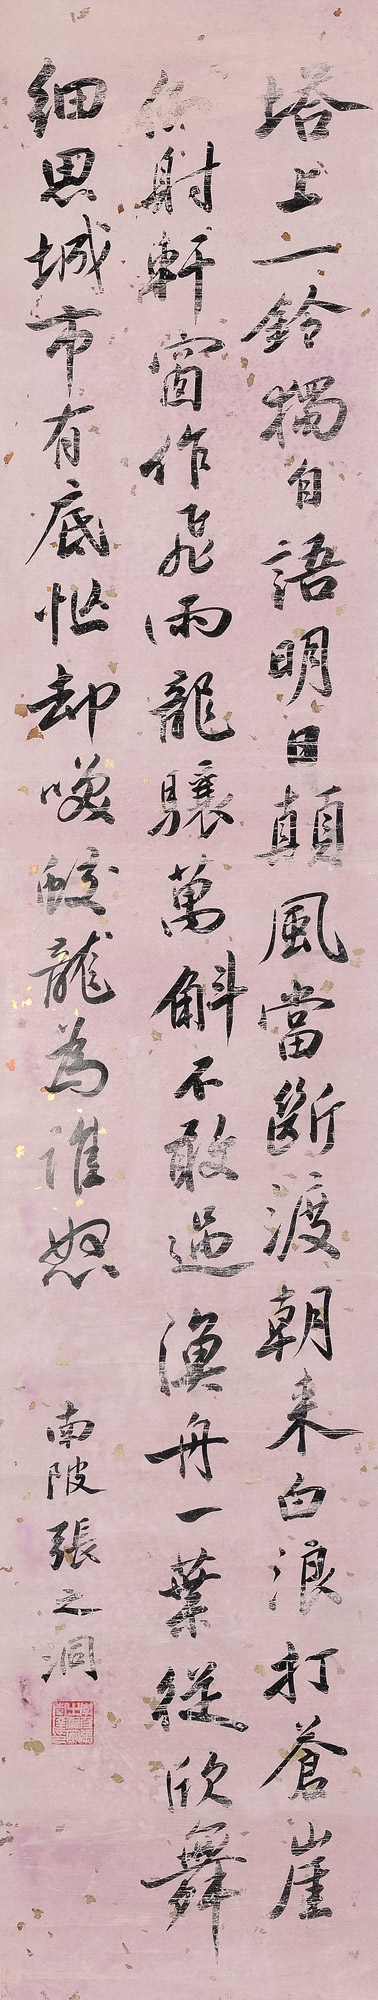 塔上一鈴獨自語明日顛風當斷渡朝來白浪打蒼崖
倒射軒窗作飛雨龍驤萬斛不敢過漁舟一葉從欣舞
細思城市有底忙却咲蛟龍為誰怒
南陂張之洞